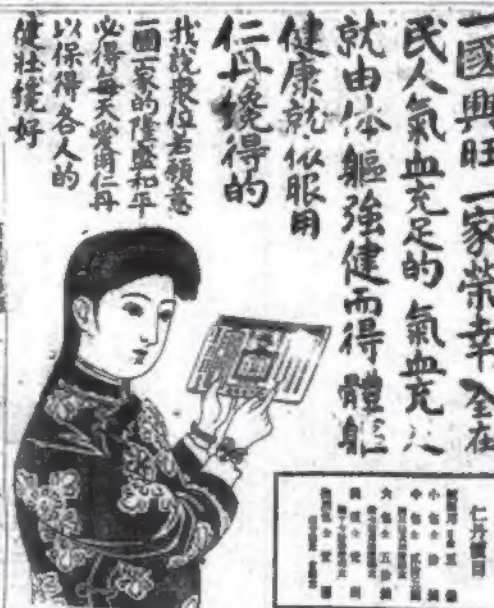 一國興旺 一家榮幸 全在
民人氣血充足的 氣血充足
就由体軀強健而得 體軀
健康就似服用
仁丹纔得的
我說衆位若願意
一國一家的隆盛和平
必得每天愛用仁丹
以保得各人的
健壯纔好
仁丹價目
小包金拾錢
大包金五拾錢